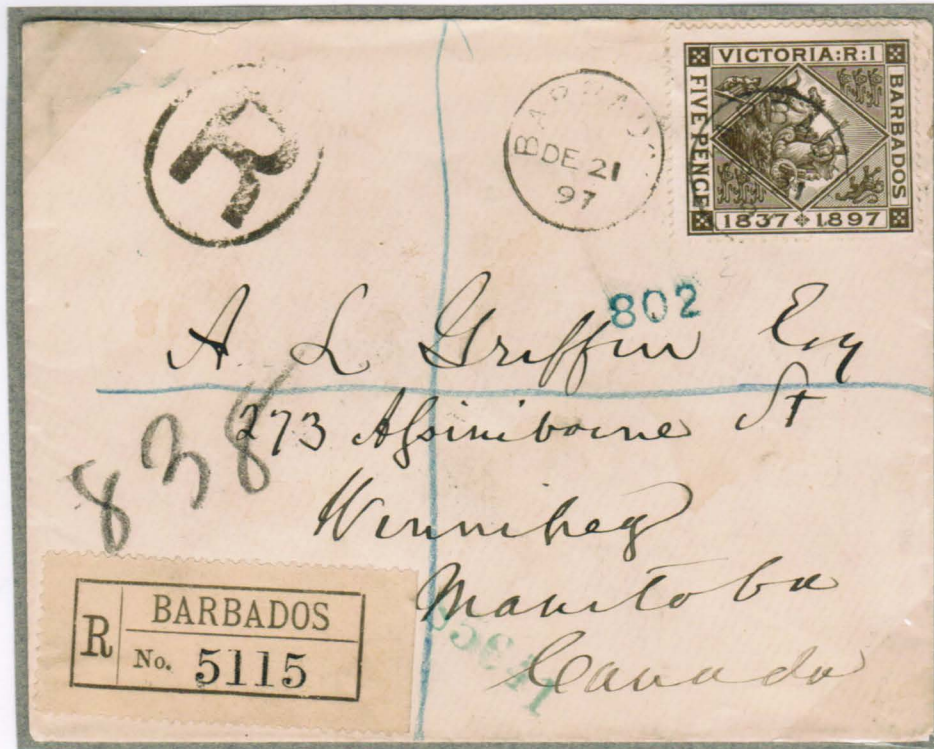 R
BARBADOS
DE 21
97
VICTORIA:R:I
BARBADOS
FIVE PENCE
1837 1897
802
A L Griffin Esq
273 Assiniboine St
838
Winnipeg
Manitoba
Canada
R
BARBADOS
No. 5115